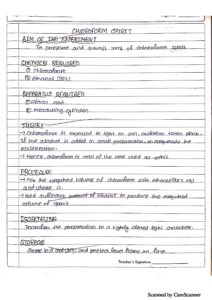 CHLOROFORM SPIRIT
AIM OF THE EXPERIMENT
To prepare and submit 10ml of chloroform spirit
CHEMICAL REQUIRED
① Chloroform
② Ethanol (90%)
APPARATUS REQUIRED
① Glass rod
② Measuring cylinder.
THEORY
→ Chloroform is exposed to light or air, oxidation takes place
If the alcohol is added in small
oxidation.
→ Hence, chloroform is most of the time used as spirit
PROCEDURE
→ Mix the required volume of chloroform with ethanol (90%)
and shake it.
→ Add sufficient amount of ethanol to produce the required
volume of spirit.
DISPENSING
Transfer the preparation to a tightly closed light container.
STORAGE
Store in a cool place and protect from
Teacher's Signature
Scanned by CamScanner